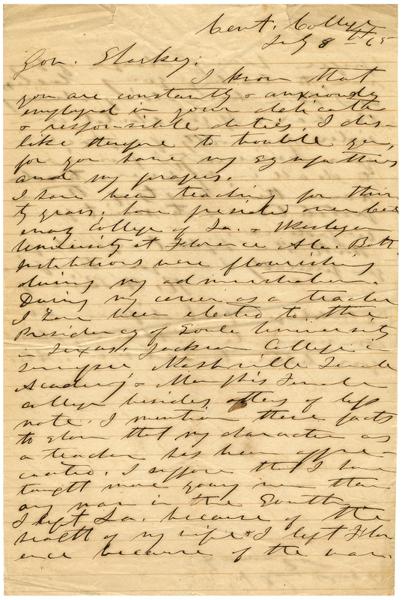 Cent. College
July 8th 65
Gov. Sharkey:
I know that
you are constantly & anxiously
employed in your delicate
& responsible duties. I dis-
like therefore to trouble you,
for you have my sympathies
and my prayers.
I have been teaching for thir
ty years; have presided over Cen
enary College of La. & Wesleyan
University at Florence Ala. Both
institutions were flourishing
during my administration.
During my career as a teacher
I have been elected to the
Presidency of Soule University
in Texas, Jackson College in
Nashville Female
Academy, & Memphis Female
College besides others of less
note. I mention these facts
to show that my character as
a teacher has been appre-
ciated. I suppose that I have
taught more young men than
any man in the South.
I left La. because of the
health of my wife & I left Flor
ence because of the war.